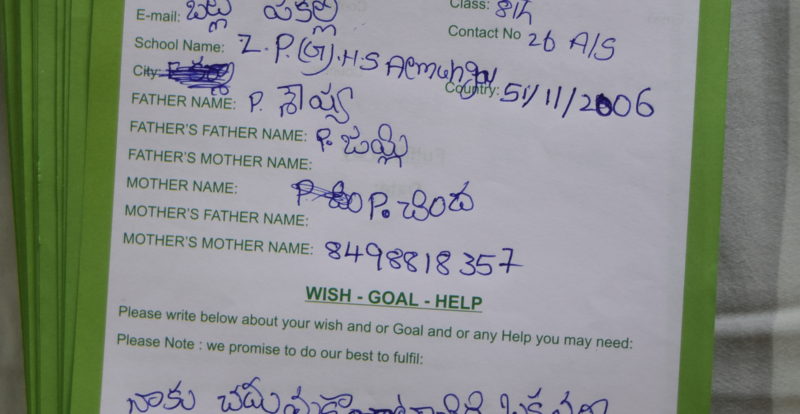 Class: 8th
E-mail: బట్లు పకల్లి
Contact No 26 A/S
School Name: Z. P. (G). H. S
City:
Country: 51/11/2006
FATHER NAME: P.
FATHER'S FATHER NAME: P.
FATHER'S MOTHER NAME:
MOTHER NAME: P. చిందు
MOTHER'S FATHER NAME:
MOTHER'S MOTHER NAME: 8498818357
WISH - GOAL - HELP
Please write below about your wish and or Goal and or any Help you may need:
Please Note : we promise to do our best to fulfil:
నాకు